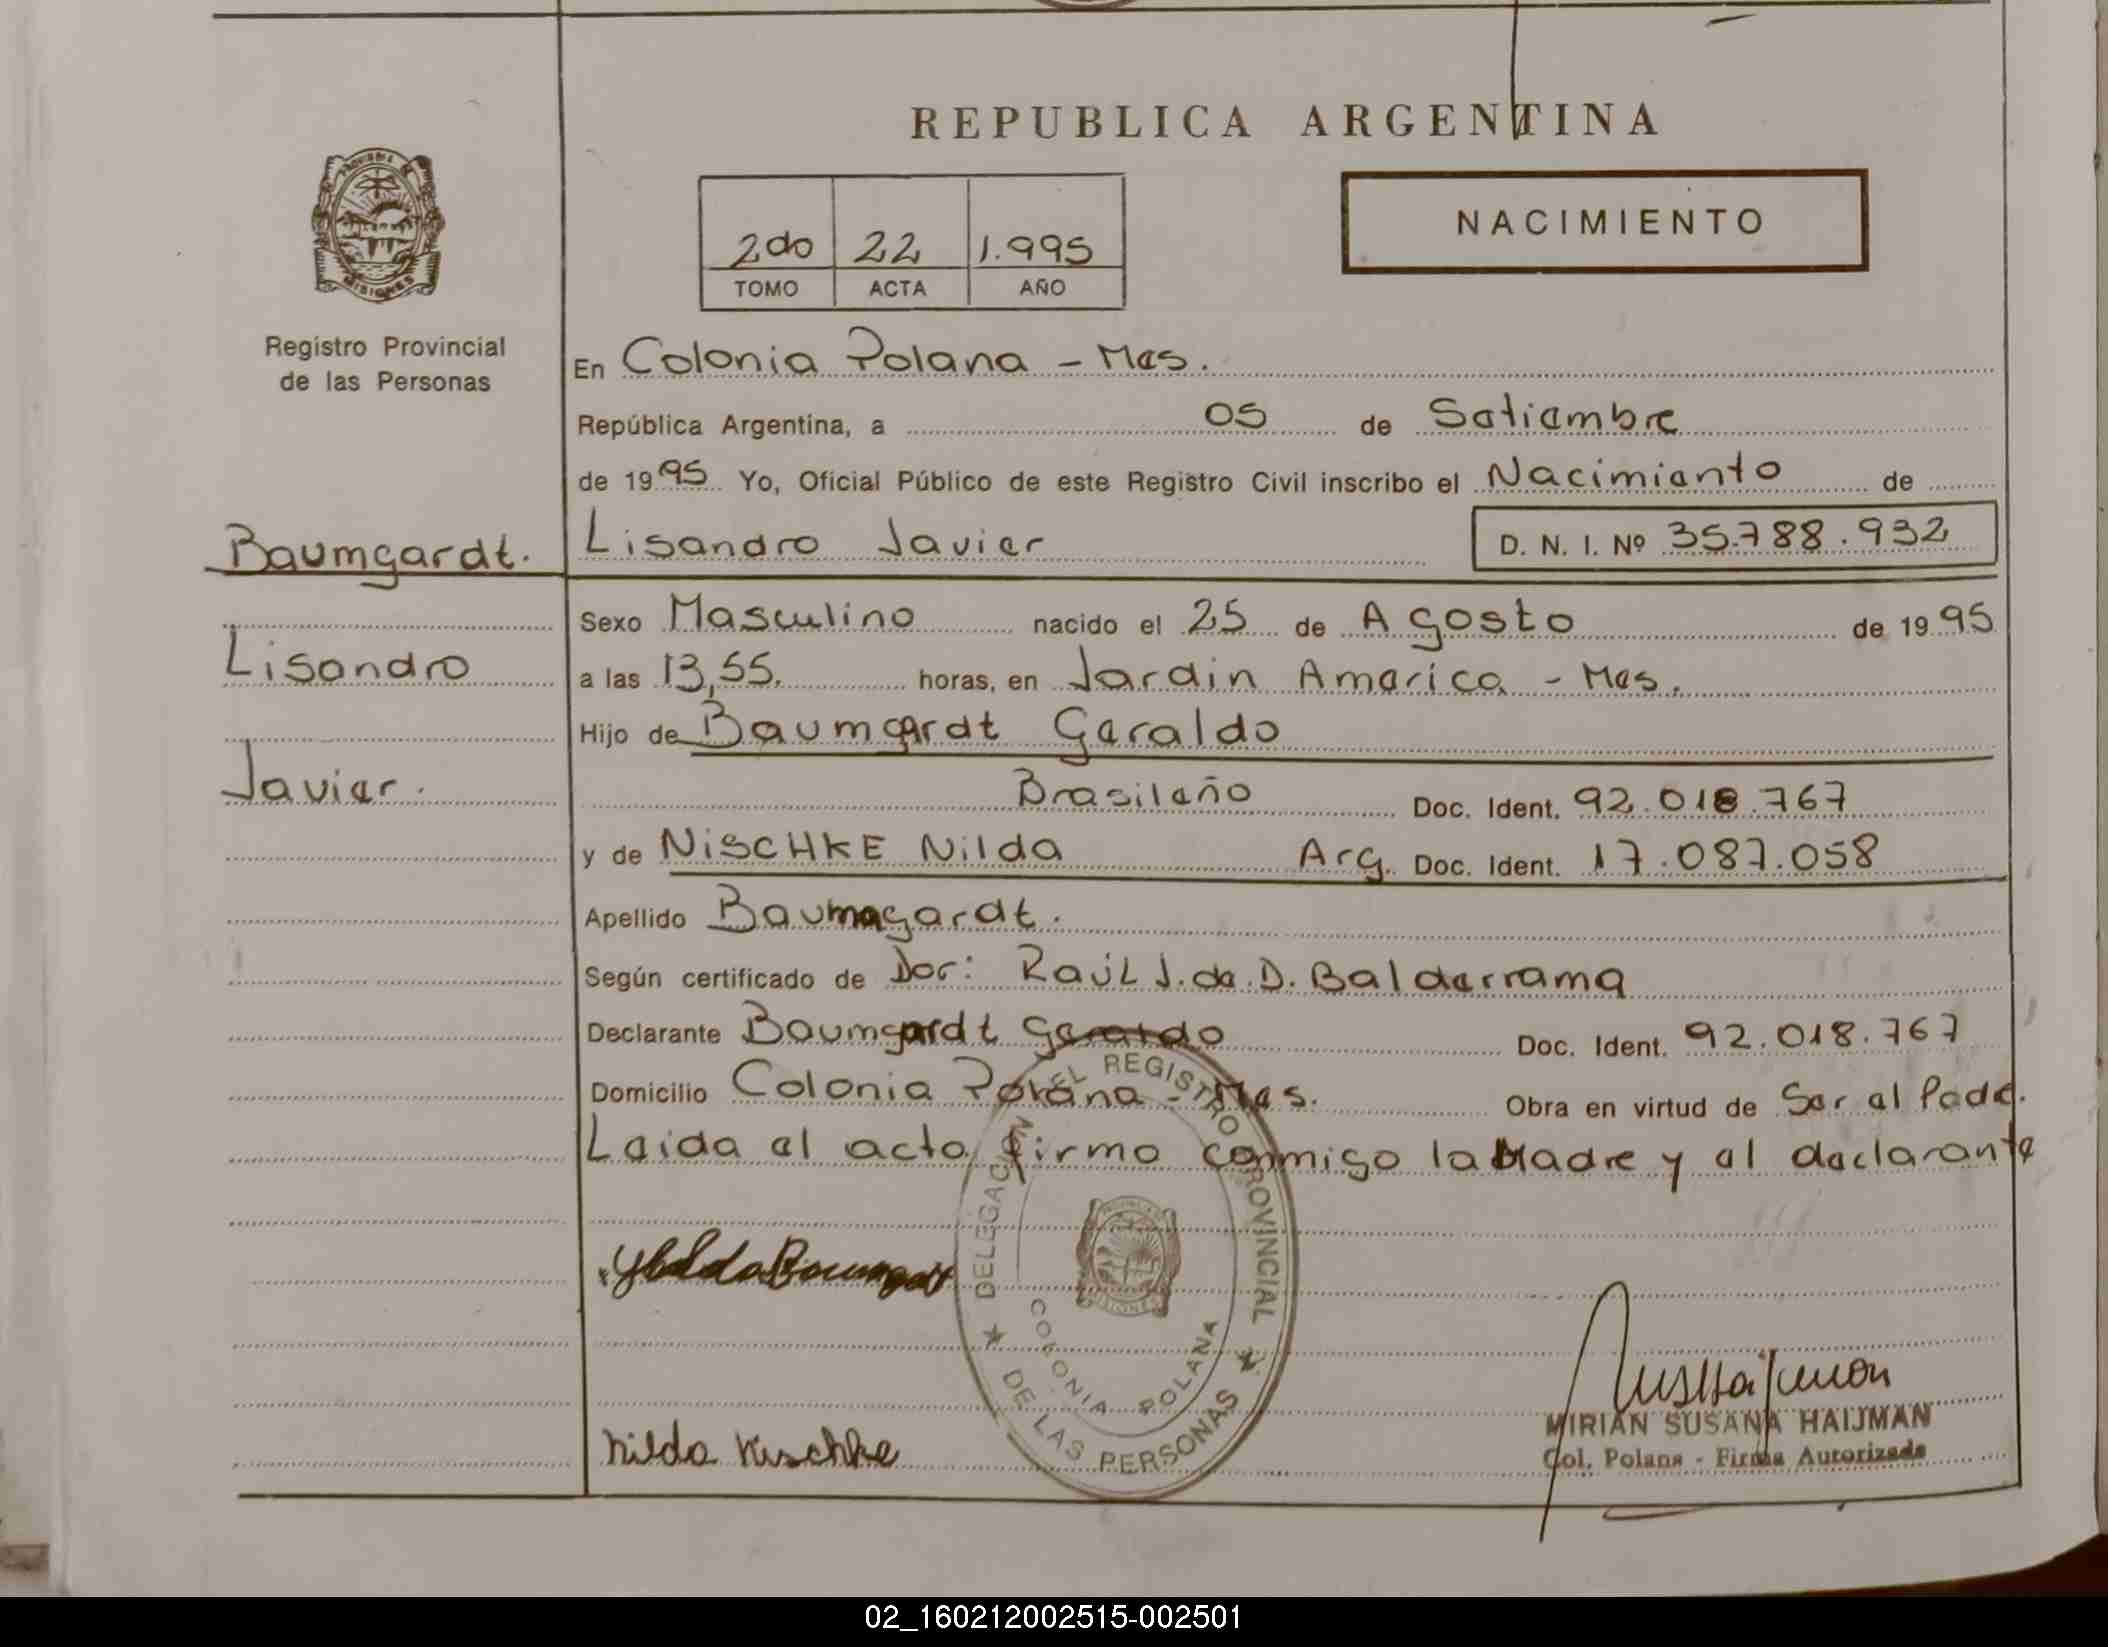 REPUBLICA ARGENTINA
NACIMIENTO
2do 22 1.995
TOMO ACTA AÑO
MISIONES
Registro Provincial
de las Personas
Baumgardt.
Lisandro
Javier.
En Colonia Polana - Mes.
República Argentina, a 05 de Setiembre
de 1995 Yo, Oficial Público de este Registro Civil inscribo el Nacimiento de
Lisandro Javier D. N. I. Nº 35.788.932
Sexo Masculino nacido el 25 de Agosto de 1995
a las 13,55. horas, en Jardin America - Mes.
Hijo de Baumgardt Geraldo
Brasileño Doc. Ident. 92.018.767
y de NISCHKE Nilda Arg. Doc. Ident. 17.087.058
Apellido Baumgardt.
Según certificado de Dor: Raúl J. de D. Balderrama
Declarante Baumgardt Geraldo Doc. Ident. 92.018.767
Domicilio Colonia Polana - Mes. Obra en virtud de Ser el Padre.
Leida el acta firma conmigo la Madre y el declarante
DELEGACION EL REGISTRO PROVINCIAL
DE LAS PERSONAS
COLONIA POLANA
MISIONES
Nilda Nischke
MIRIAN SUSANA HAIJMAN
Col. Polana - Firma Autorizada
02_160212002515-002501